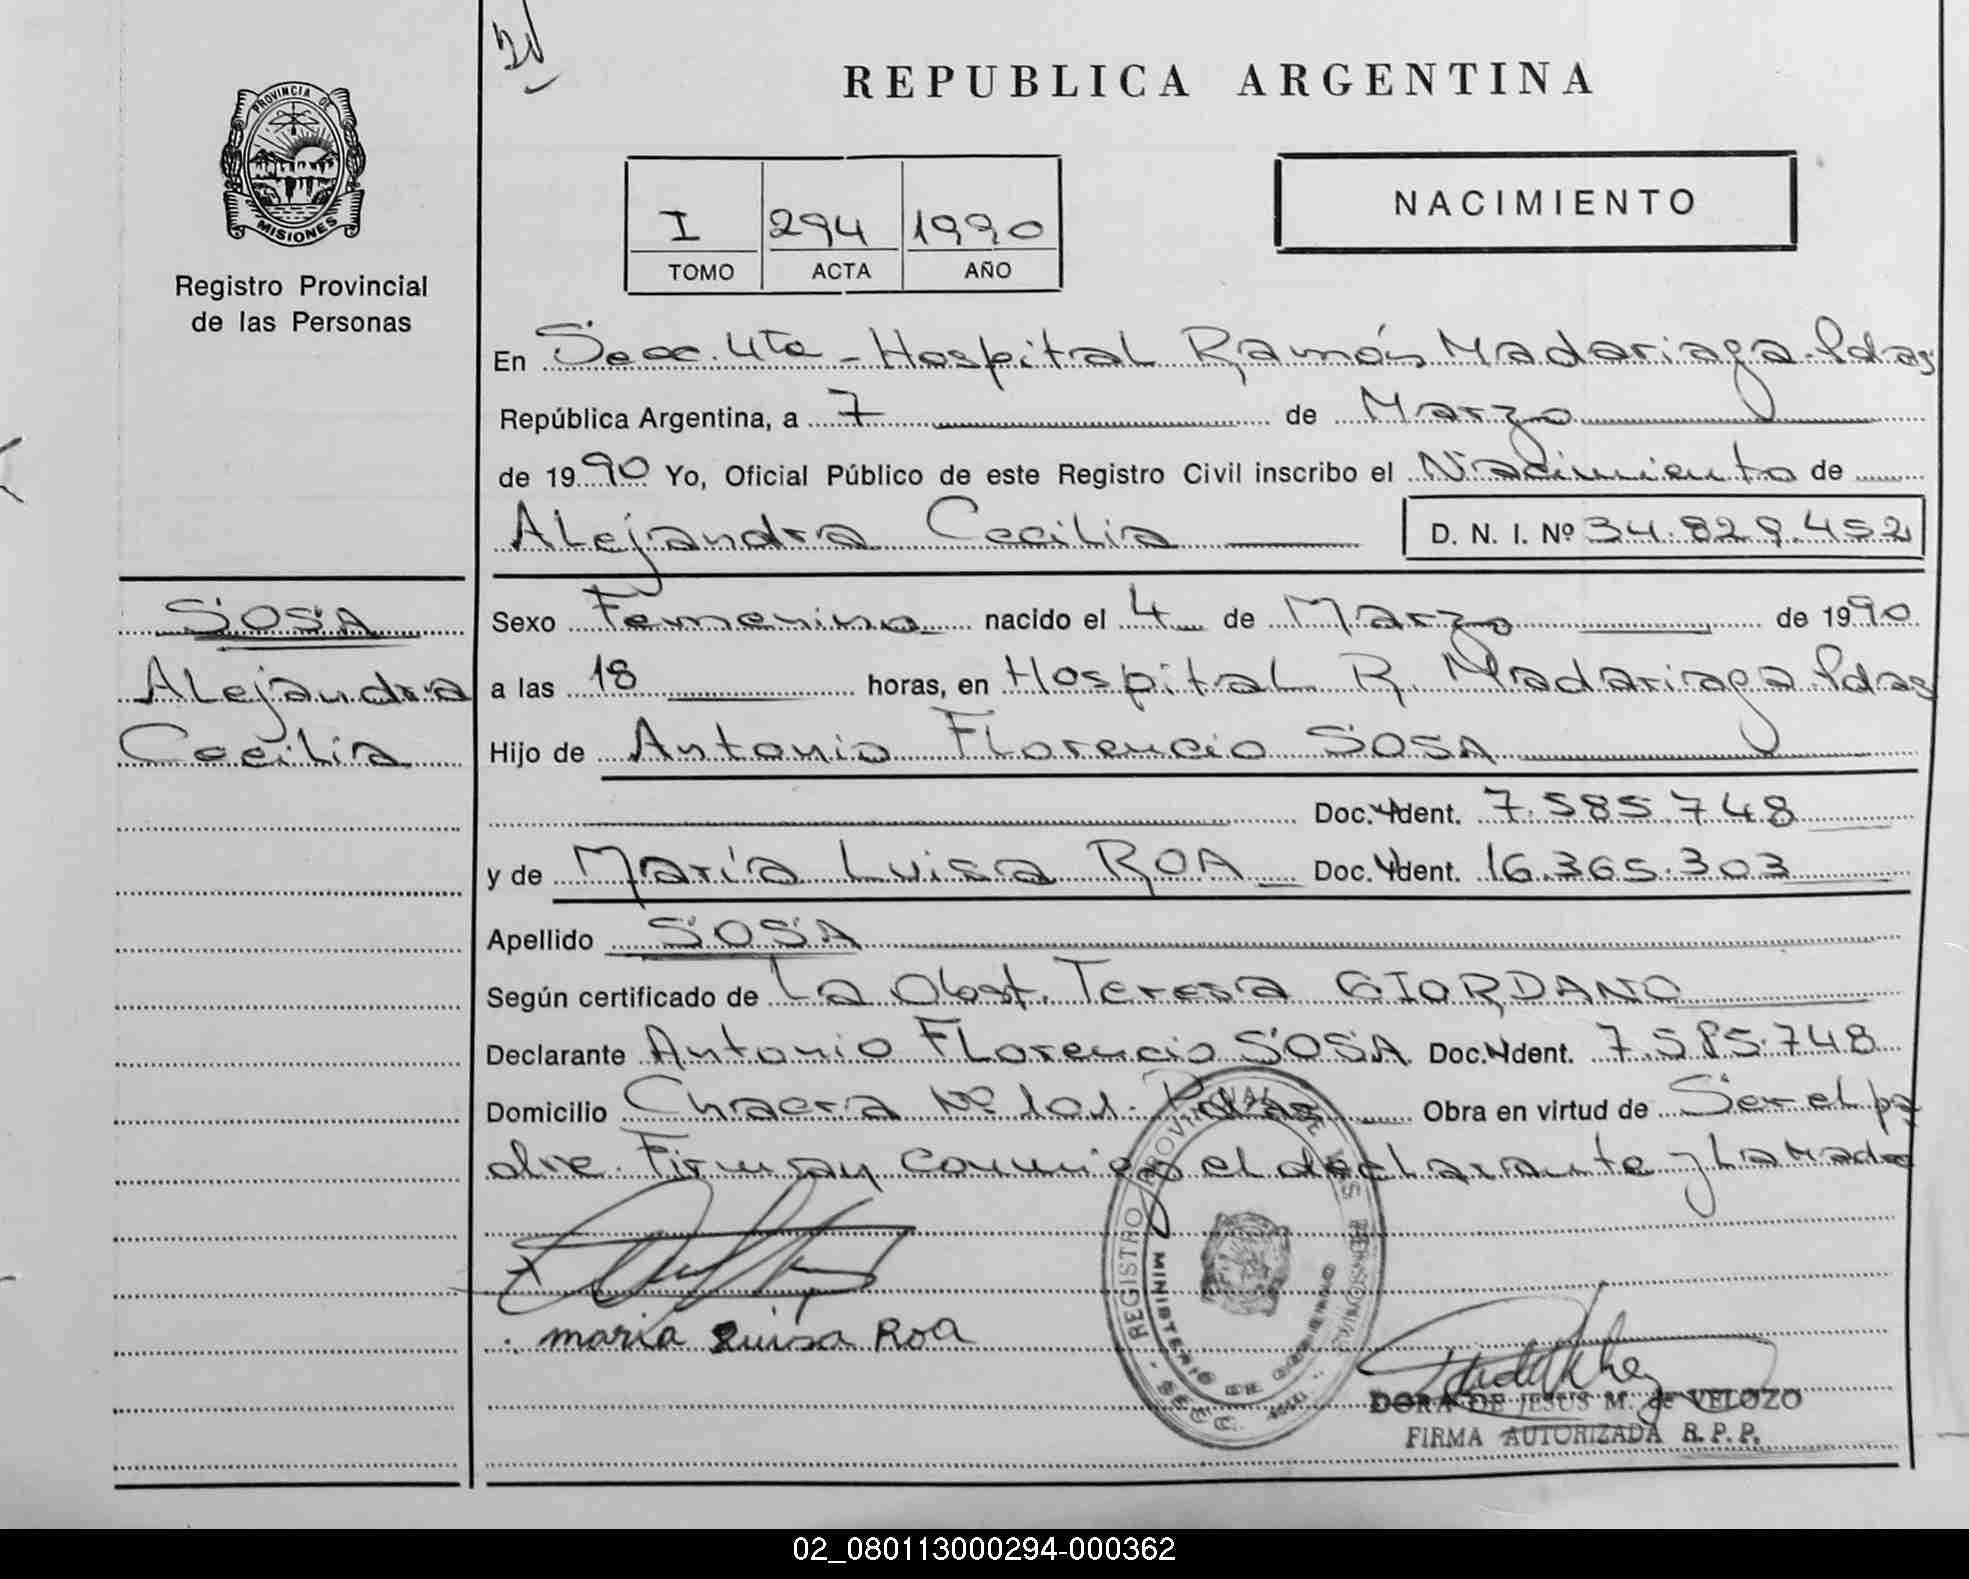 REPUBLICA ARGENTINA
PROVINCIA DE
MISIONES
Registro Provincial
de las Personas
I 294 1990
TOMO ACTA AÑO
NACIMIENTO
En Secc. 4ta - Hospital Ramón Madariaga. Pdas
República Argentina, a 7 de Marzo
de 1990 Yo, Oficial Público de este Registro Civil inscribo el Nacimiento de
Alejandra Cecilia D. N. I. Nº 34.829.452
SOSA
Alejandra
Cecilia
Sexo Femenino nacido el 4 de Marzo de 1990
a las 18 horas, en Hospital R. Madariaga Pdas
Hijo de Antonio Florencio SOSA
Doc. Ident. 7.585.748
y de María Luisa ROA Doc. Ident. 16.365.303
Apellido SOSA
Según certificado de La Obst. Teresa GIORDANO
Declarante Antonio Florencio SOSA Doc. Ident. 7.585.748
Domicilio Chacra Nº 101. Pdas Obra en virtud de Ser el pa
dre. Firman conmigo el declarante y La Madre
maria Luisa Roa
REGISTRO PROVINCIAL DE LAS PERSONAS
MINISTERIO DE GOBIERNO
SECC.
DORA DE JESUS M. de VELOZO
FIRMA AUTORIZADA R. P. P.
02_080113000294-000362